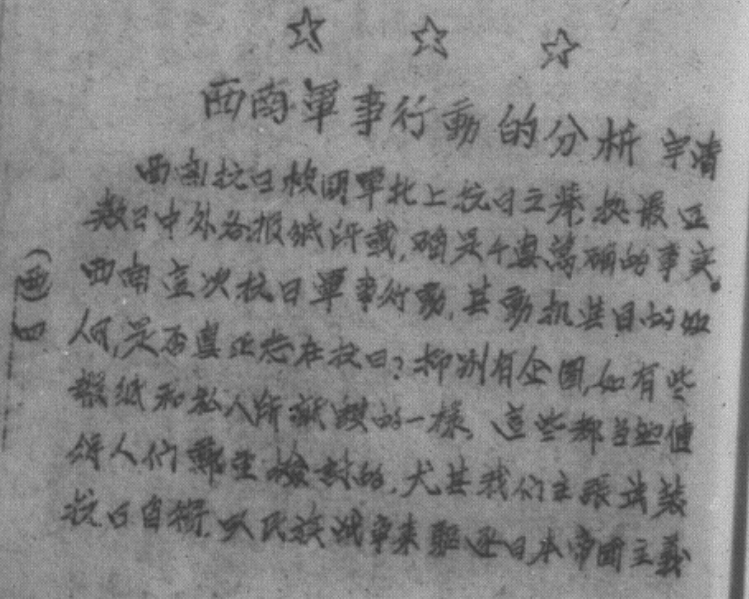 西南軍事行動的分析 宇清
西南抗日救國軍北上抗日之舉,按最近
数日中外各报紙所載,确是千真萬确的事实。
西南這次抗日軍事行動,其動机其目的如
何,是否真正志在抗日?抑别有企圖,如有些
報紙和私人所猜臆的一樣,這些都当然值
得人们鄭重檢討的,尤其我们主張武裝
抗日自衛,以民族战争来驅逐日本帝國主義